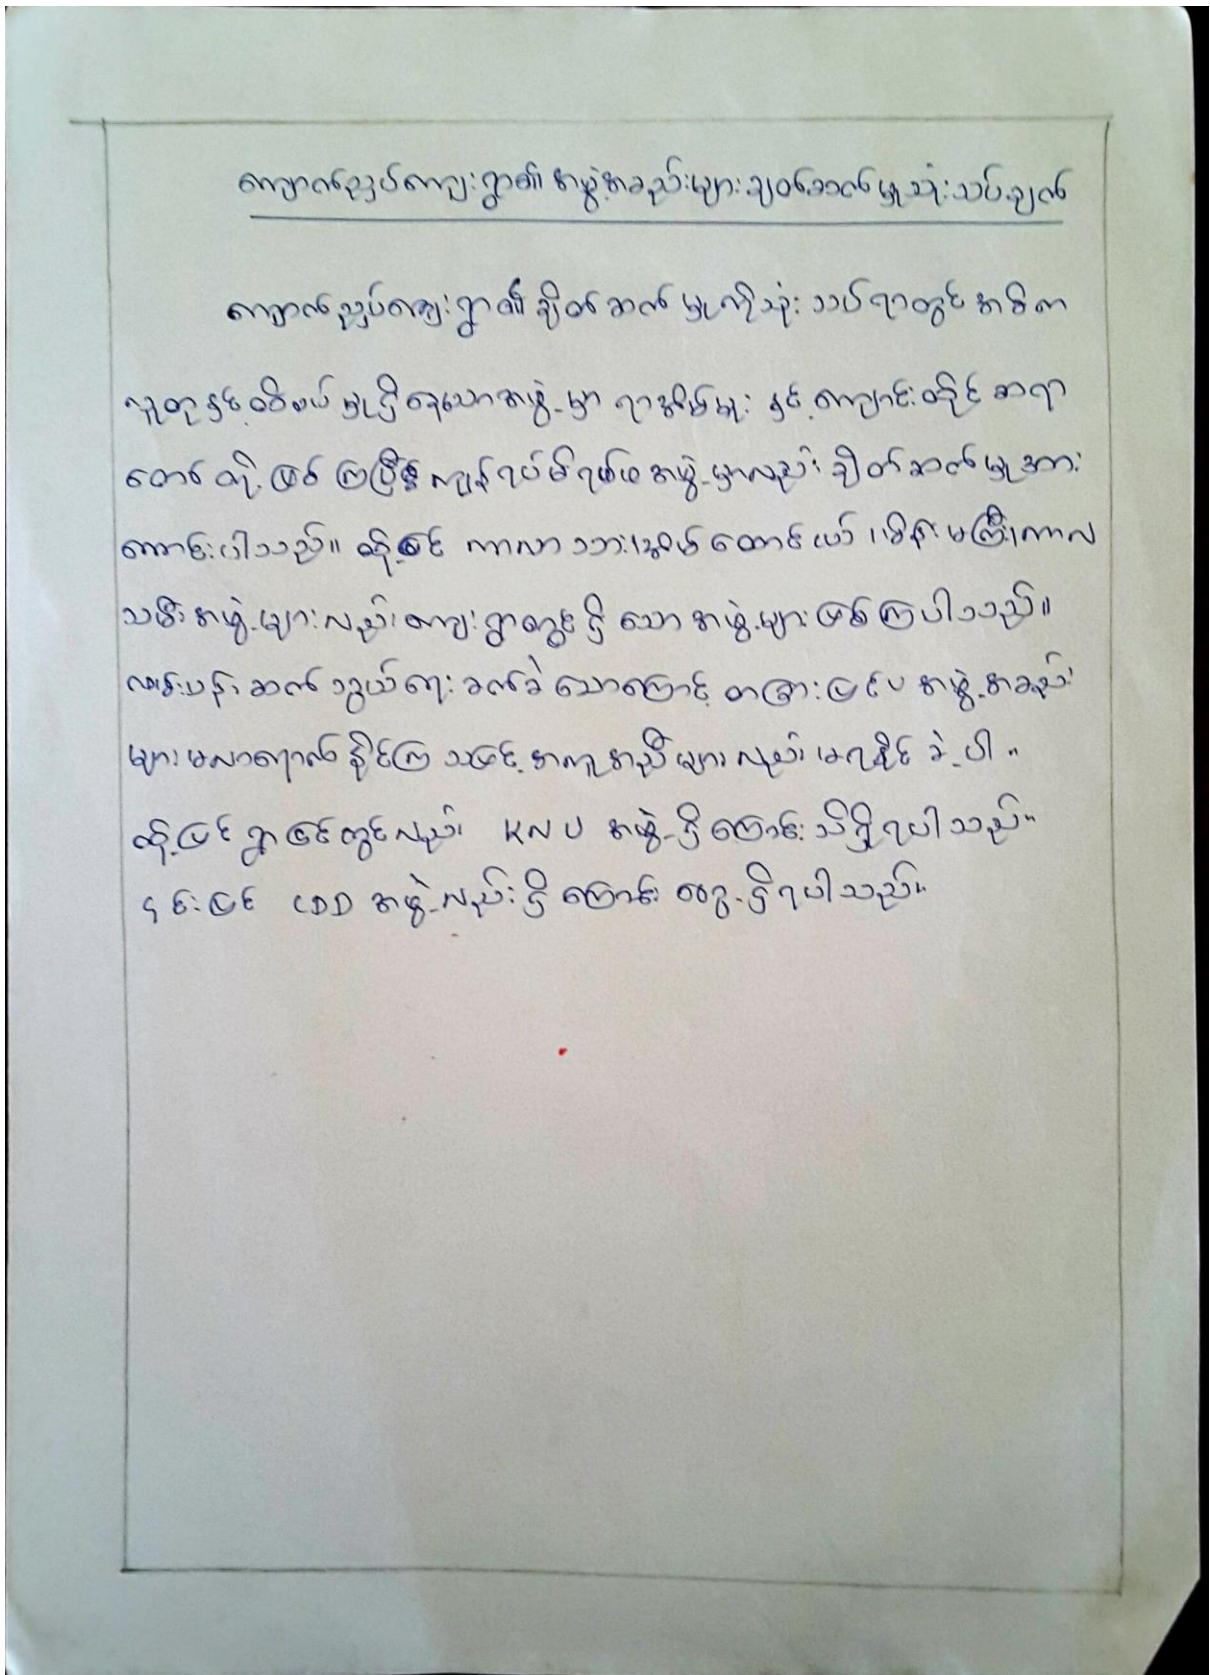 ကျောက်ညှပ်ကျေးရွာ၏ အဖွဲ့အစည်းများ ချိတ်ဆက်မှုသုံးသပ်ချက်
ကျောက်ညှပ်ကျေးရွာ၏ ချိတ်ဆက်မှုကိုသုံးသပ်ရာတွင် အဓိက
လူထုနှင့် ထိစပ်မှုရှိနေသောအဖွဲ့မှာ ရာအိမ်မှူး နှင့် ကျောင်းထိုင်ဆရာ
တော်တို့ ဖြစ်ကြပြီး ကျန်ရပ်မိရပ်ဖအဖွဲ့မှာလည်း ချိတ်ဆက်မှုအား
ကောင်းပါသည်။ ထို့ပြင် ကာလသား၊အိမ်ထောင်
သမီးအဖွဲ့များလည်း ကျေးရွာတွင်ရှိသော အဖွဲ့များဖြစ်ကြပါသည်။
လမ်းပန်း ဆက်သွယ်ရေး ခက်ခဲသောကြောင့် တခြားပြင်ပအဖွဲ့အစည်း
များ မလာရောက်နိုင်ကြသဖြင့် အကူအညီများလည်း မရနိုင်ခဲ့ပါ။
ထို့ပြင် ရွာပြင်တွင်လည်း KNU အဖွဲ့ရှိကြောင်း သိရှိရပါသည်။
၎င်းပြင် CDD အဖွဲ့လည်းရှိကြောင်း တွေ့ရှိရပါသည်။